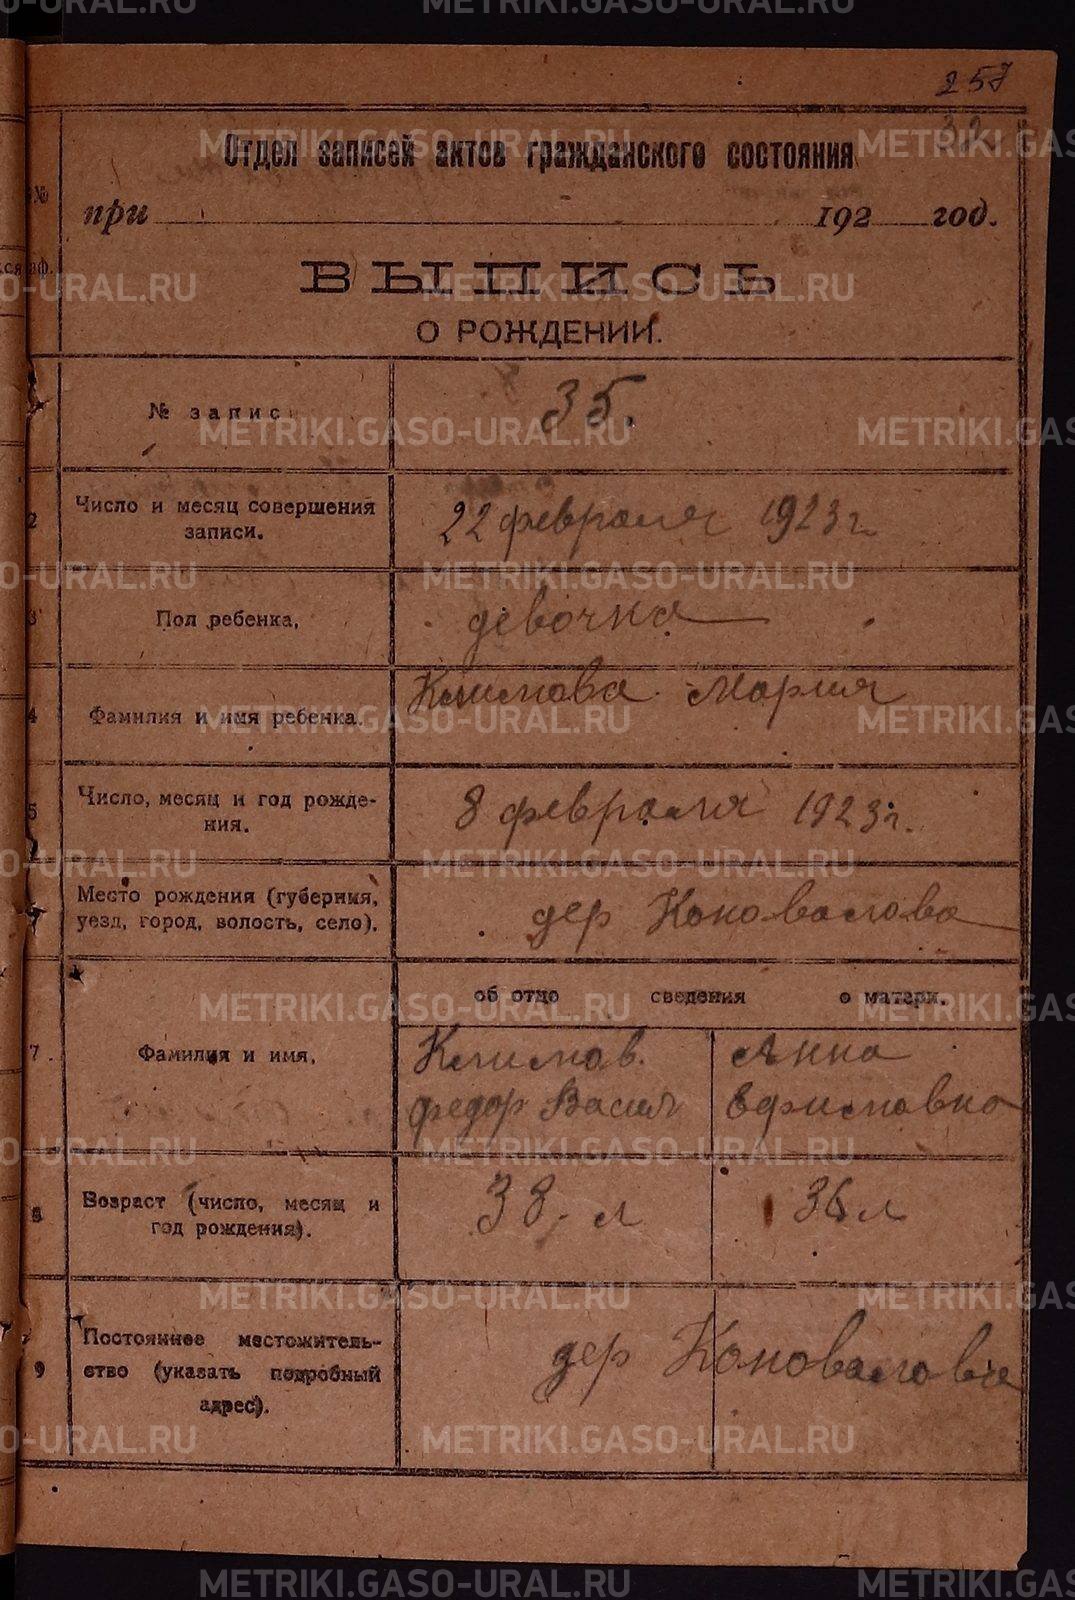 257
32
Отдел записей актов гражданского состояния
№
при 192 год.
ВЫПИСЬ
О РОЖДЕНИИ.
№ запис 35.
2 Число и месяц совершения
записи.
22 февраля 1923 г.
3 Пол ребенка. девочка
4 Фамилия и имя ребенка. Климова Мария
5 Число, месяц и год рожде-
ния.
8 февраля 1923 г.
Место рождения (губерния,
уезд, город, волость, село).
дер Коновалова
об отце сведения о матери.
7. Фамилия и имя.
Климов. Анна
Федор Васил Ефимовна
8 Возраст (число, месяц и
год рождения).
38 л 36 л
9 Постоянное местожитель-
ство (указать подробный
адрес).
дер Коновалова
METRIKI.GASO-URAL.RU